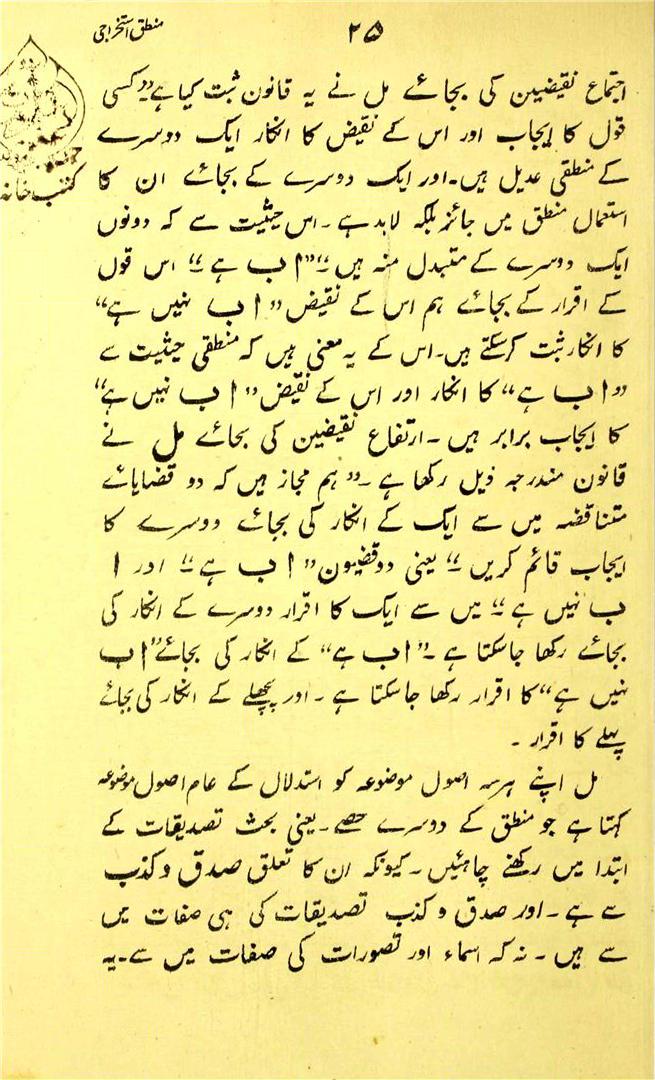 ۲۵
منطق استخراجی
اجتماع نقیضین کی بجائے مل نے یہ قانون ثبت کیا ہے۔ ”کسی
قول کا ایجاب اور اس کے نقیض کا انکار ایک دوسرے
کے منطقی عدیل ہیں۔ اور ایک دوسرے کے بجائے ان کا
استعمال منطق میں جائز بلکہ لابد ہے۔ اس حیثیت سے کہ دونوں
ایک دوسرے کے متبدل منہ ہیں“۔ ”ا ب ہے“ اس قول
کے اقرار کے بجائے ہم اس کے نقیض ”ا ب نہیں ہے“
کا انکار ثبت کرسکتے ہیں۔ اس کے یہ معنی ہیں کہ منطقی حیثیت سے
”ا ب ہے“ کا انکار اور اس کے نقیض ”ا ب نہیں ہے“
کا ایجاب برابر ہیں۔ ارتفاع نقیضین کی بجائے مل نے
قانون مندرجہ ذیل رکھا ہے۔ ”ہم مجاز ہیں کہ دو قضایائے
متناقضہ میں سے ایک کے انکار کی بجائے دوسرے کا
ایجاب قائم کریں“۔ یعنی دوقضیون ”ا ب ہے“ اور ا
ب نہیں ہے“ میں سے ایک کا اقرار دوسرے کے انکار کی
بجائے رکھا جاسکتا ہے۔ ”ا ب ہے“ کے انکار کی بجائے ”ا ب
نہیں ہے“ کا اقرار رکھا جاسکتا ہے۔ اور پچھلے کے انکار کی بجائے
پہلے کا اقرار۔
مل اپنے ہرسہ اصول موضوعہ کو استدلال کے عام اصول موضوعہ
کہتا ہے جو منطق کے دوسرے حصے۔ یعنی بحث تصدیقات کے
ابتدا میں رکھنے چاہئیں۔ کیونکہ ان کا تعلق صدق و کذب
سے ہے۔ اور صدق و کذب تصدیقات کی ہی صفات میں
سے ہیں۔ نہ کہ اسماء اور تصورات کی صفات میں سے۔ یہ
کتب خانہ